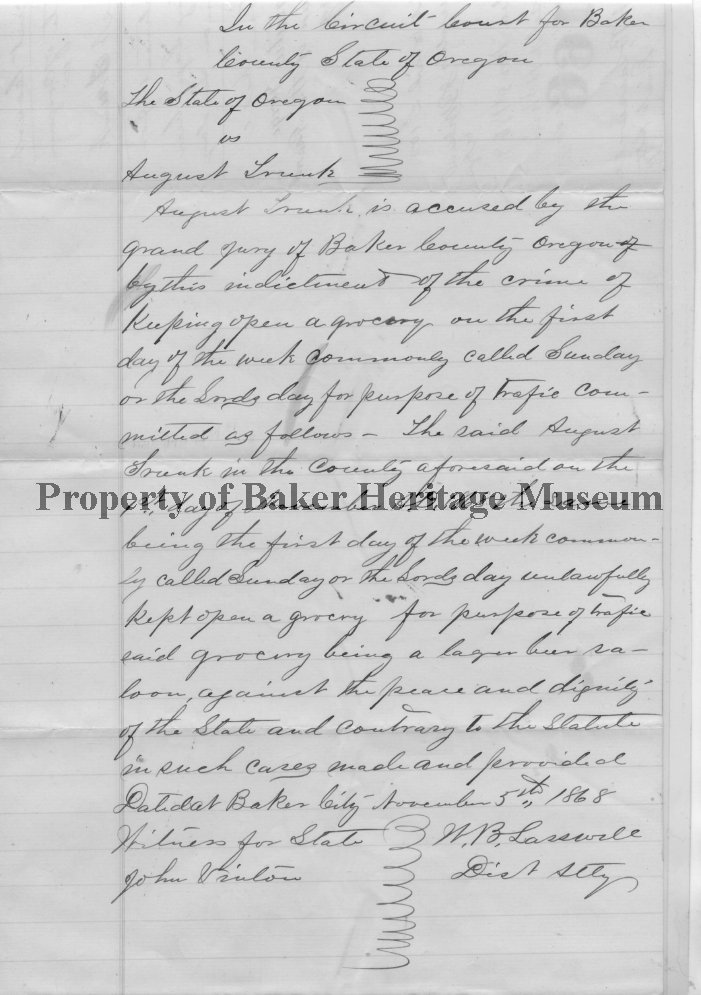 In the Circuit Court for Baker
County State of Oregon
The State of Oregon
vs
August Trunk
August Trunk is accused by the
grand jury of Baker County Oregon of
by this indictment of the crime of
Keeping open a grocery on the first
day of the week commonly called Sunday
or the Lords day for purpose of trafic com-
mitted as follows - The said August
Trunk in the County aforesaid on the
Property of Baker Heritage Museum
day of
being the first day of the week common-
ly called Sunday or the Lords day unlawfully
kept open a grocry for purpose of trafic
said grocery being a lager beer sa-
loon, against the peace and dignity
of the State and contrary to the Statute
in such cases made and provided
Dated at Baker City November 5th, 1868
Witness for State W. B. Lasswell
John Vinton Dist Atty